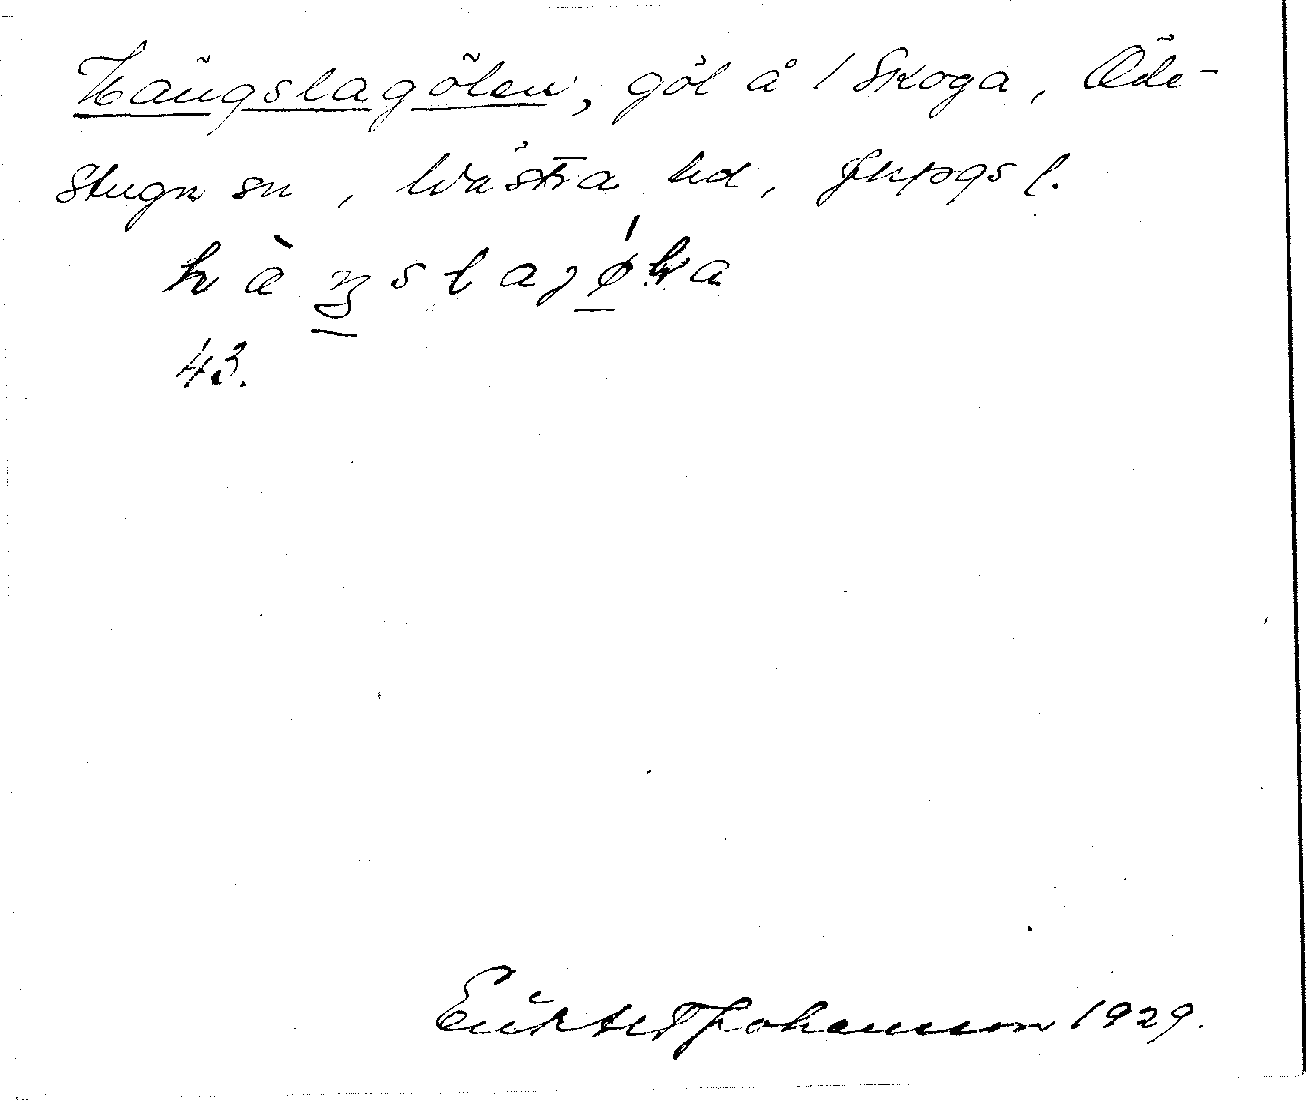 Hängslagölen, göl å / Skoga, Öde-
stugu sn, Västra hd, Jnkpgs l.
hàŋslajǿka
43.
Johansson 1929.